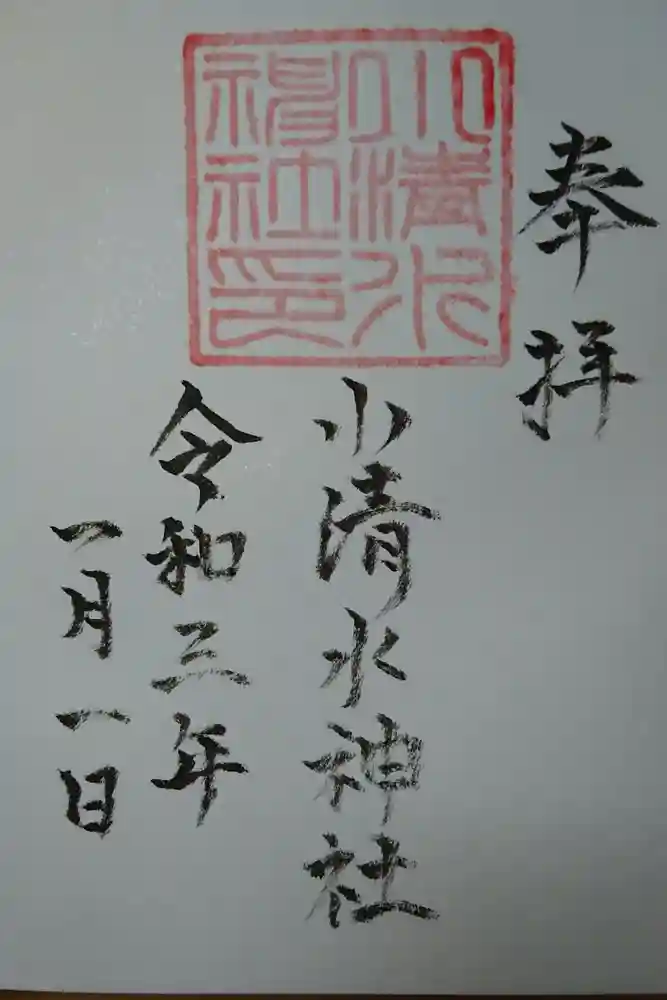 奉拝
小清水
神社印
小清水神社
令和三年
一月一日